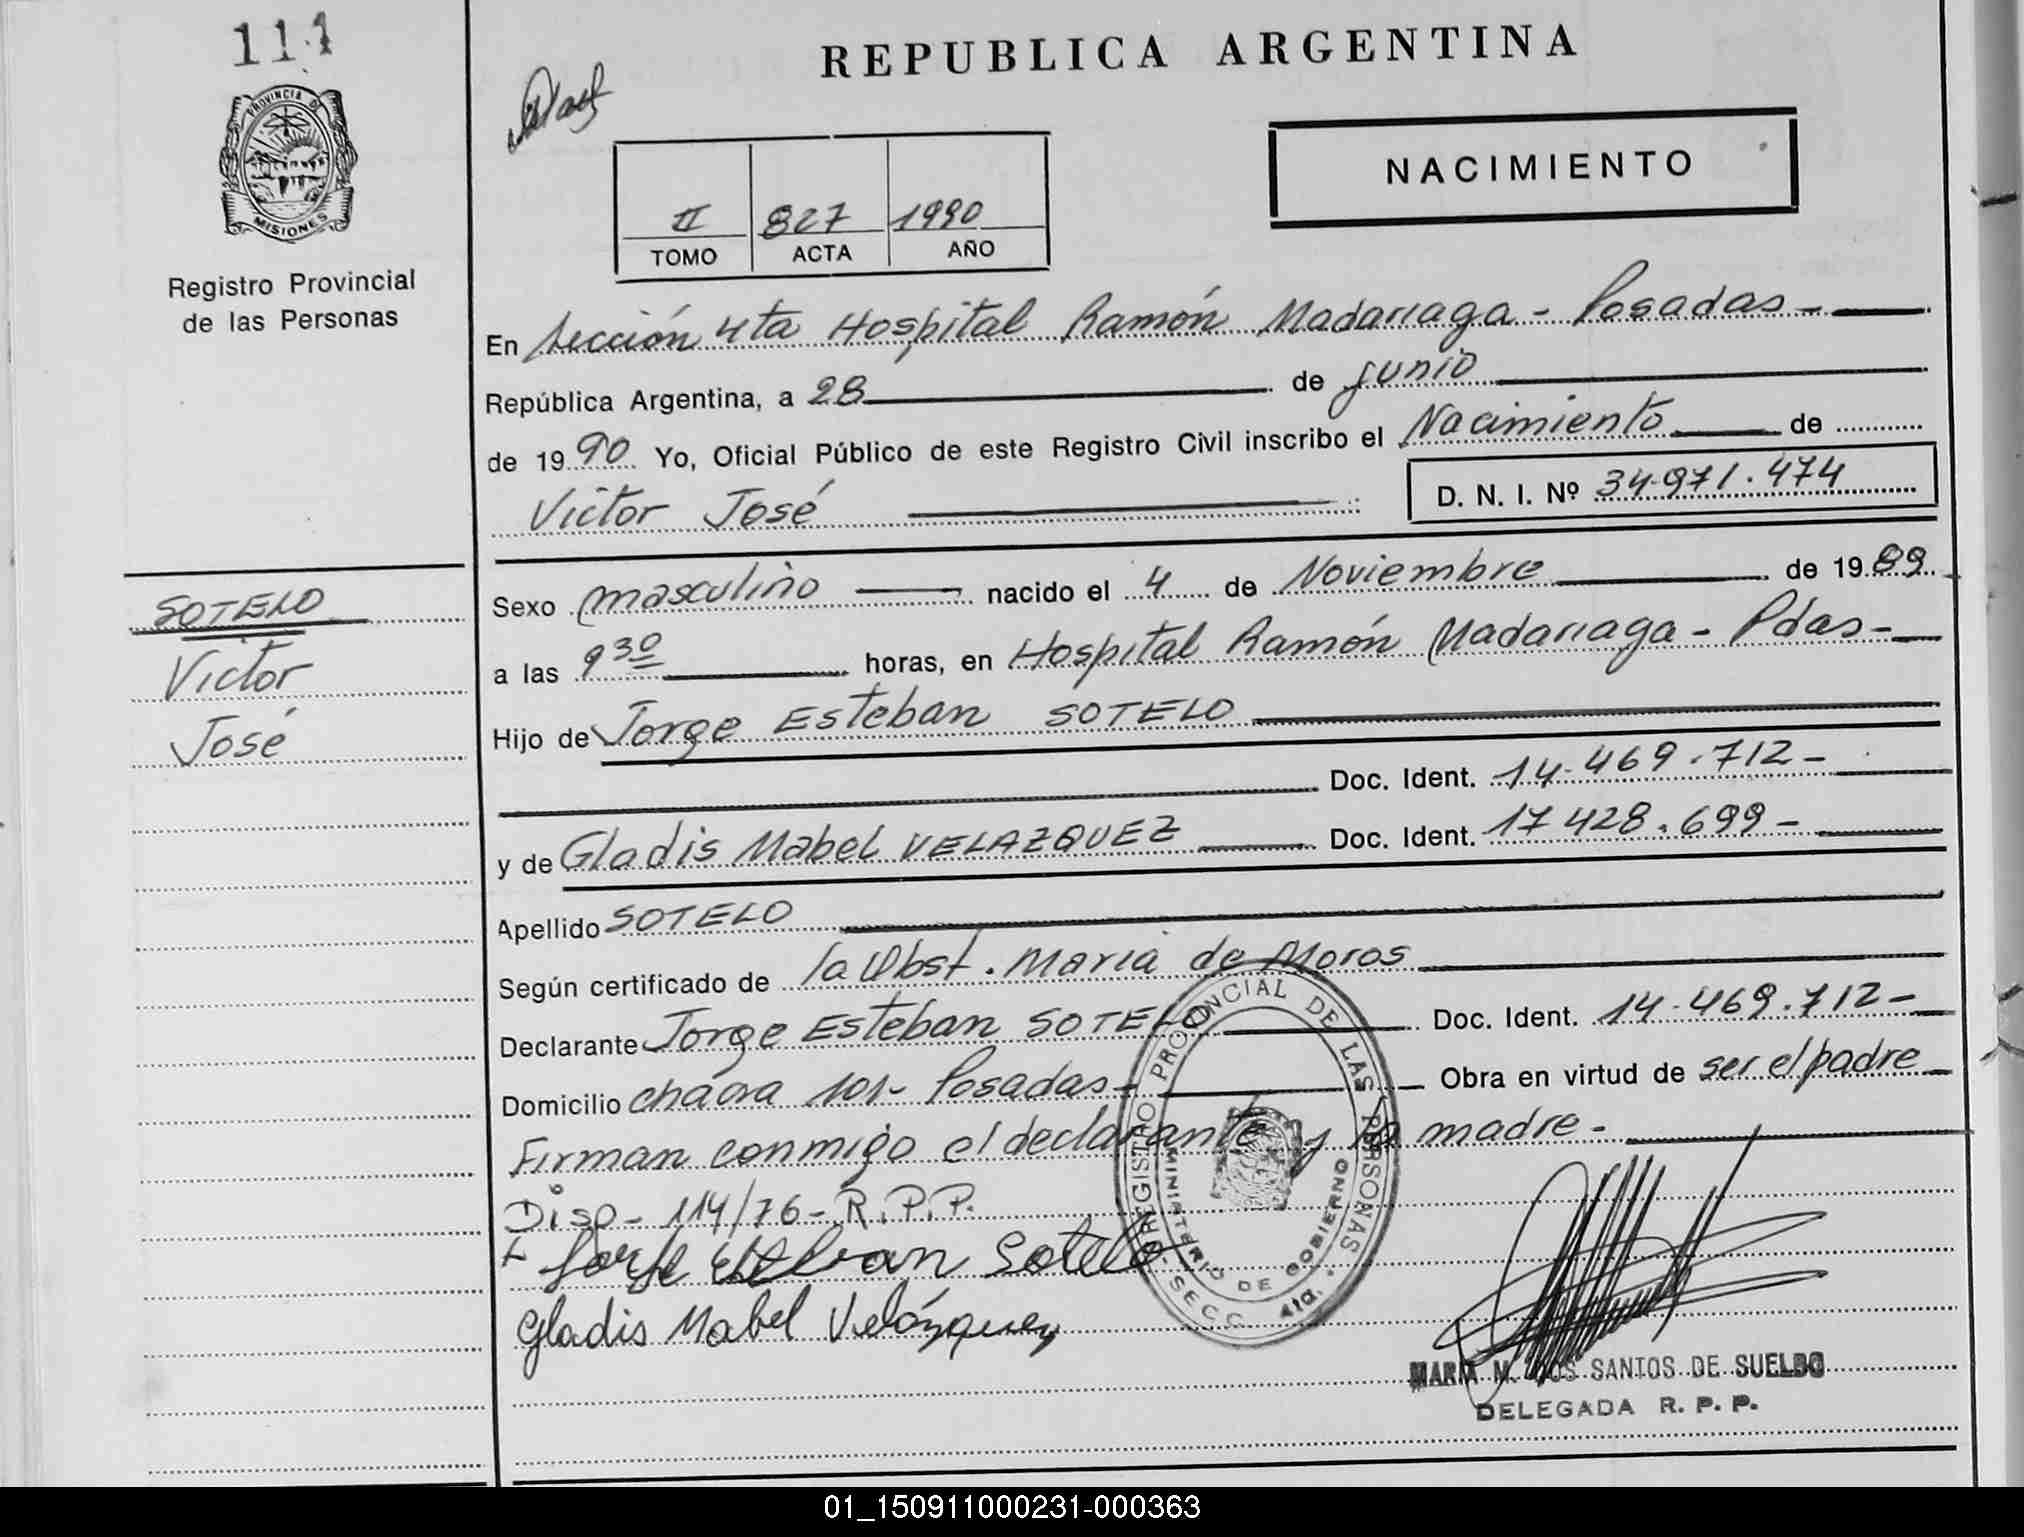 111
REPUBLICA ARGENTINA
PROVINCIA DE
MISIONES
Registro Provincial
de las Personas
NACIMIENTO
II 827 1990
TOMO ACTA AÑO
En Sección 4ta Hospital Ramón Madariaga - Posadas -
República Argentina, a 28 de junio
de 1990 Yo, Oficial Público de este Registro Civil inscribo el Nacimiento de
Victor José
D. N. I. Nº 34.971.474
SOTELO
Victor
José
Sexo masculino nacido el 4 de Noviembre de 1989
a las 9 30 horas, en Hospital Ramón Madariaga - Pdas -
Hijo de Jorge Esteban SOTELO
Doc. Ident. 14.469.712 -
y de Gladis Mabel VELAZQUEZ Doc. Ident. 17 428.699 -
Apellido SOTELO
Según certificado de la Obst. Maria de Moros
Declarante Jorge Esteban SOTELO Doc. Ident. 14.469.712 -
Domicilio chacra 101 - Posadas - Obra en virtud de ser el padre
Firman conmigo el declarante y la madre -
Disp - 114/76 - R.P.P.
Jorge Esteban Sotelo
Gladis Mabel Velázquez
REGISTRO PROVINCIAL DE LAS PERSONAS
MINISTERIO DE GOBIERNO
- SECC. 4ta. -
MARIA M. DOS SANTOS DE SUELDO
DELEGADA R. P. P.
01_150911000231-000363